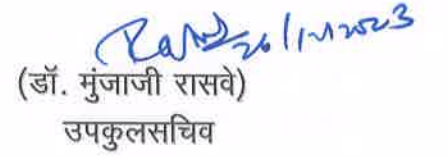 26/12/2023
(डॉ. मुंजाजी रासवे)
उपकुलसचिव